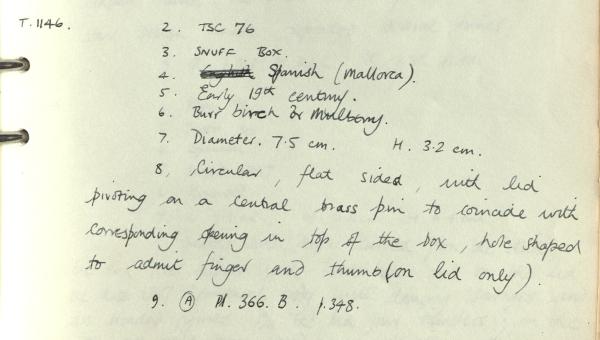 T.1146.
2. TSC 76
3. SNUFF BOX.
4. English Spanish (Mallorca).
5. Early 19th century.
6. Burr birch or mulberry.
7. Diameter. 7.5 cm. H. 3.2 cm.
8, Circular, flat sided, with lid
pivoting on a central brass pin to coincide with
corresponding opening in top of the box, hole shaped
to admit finger and thumb (on lid only).
9. A Pl. 366. B. p.348.